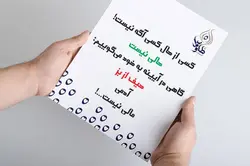 کسی از حال کسی آگه نیست!
مالی نیست
گاهی در آیینه به خود می‌گوییم:
حیف از بز
آدمی
مالی نیست...!